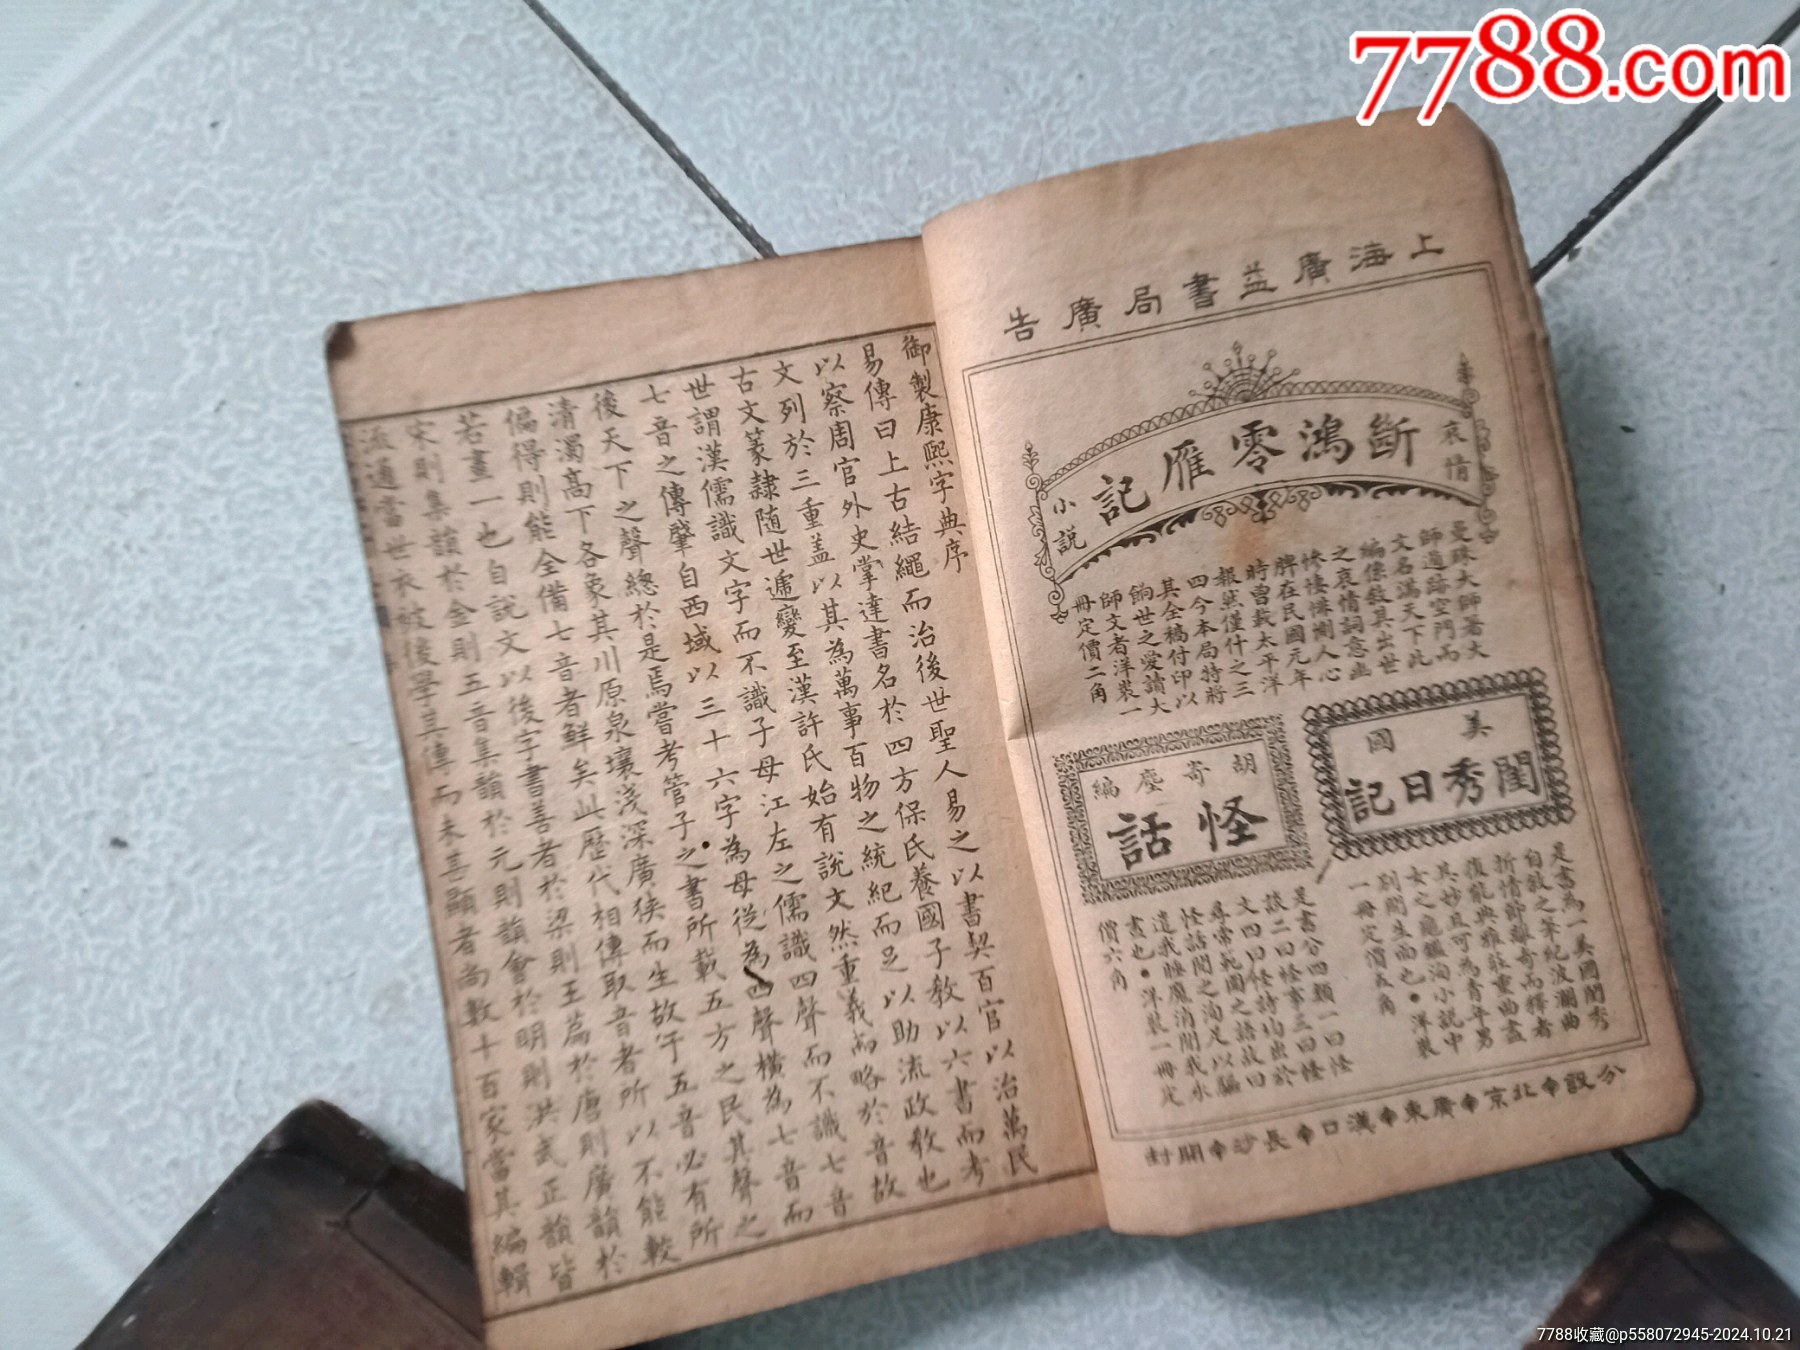 7788.com
上海廣益書局廣告
哀情
斷鴻零雁記
小説
曼殊大師著大
師遁跡空門而
文名滿天下此
編係敘其出世
之哀情詞意幽
慘悽惻人心
脾在民國元年
時曾載太平洋
報然僅什之三
四今本局特將
其全稿付印以
餉世之愛讀大
師文者洋裝一
冊定價二角
美國
閨秀日記
是書為一美國閨秀
自敘之筆紀波瀾曲
折情節離奇而譯者
復能典雅莊重曲盡
其妙且可為青年男
女之龜鑑洵小說中
別開生面也•洋裝
一冊定價五角
胡寄塵編
怪話
是書分四類一曰怪
談二曰怪事三曰怪
文四曰怪詩均出於
尋常範圍之語故曰
怪話閱之洵足以驅
遣我睡魔消閒我永
晝也•洋裝一冊定
價六角
分設北京廣東漢口長沙開封
御製康熙字典序
易傳曰上古結繩而治後世聖人易之以書契百官以治萬民
以察周官外史掌達書名於四方保氏養國子教以六書而考
文列於三重蓋以其為萬事百物之統紀而足以助流政教也
古文篆隸隨世遞變至漢許氏始有說文然重義而略於音故
世謂漢儒識文字而不識子母江左之儒識四聲而不識七音
七音之傳肇自西域以三十六字為母從為四聲橫為七音而
後天下之聲總於是焉嘗考管子之書所載五方之民其聲之
清濁高下各象其川原泉壤淺深廣狹而生故于五音必有所
偏得則能全備七音者鮮矣此歷代相傳取音者所以不能較
若畫一也自說文以後字書善者於梁則玉篇於唐則廣韻於
宋則集韻於金則五音集韻於元則韻會於明則洪武正韻皆
流通當世衣被後學其傳而未甚顯者尚數十百家當其編輯
7788收藏@p558072945-2024.10.21